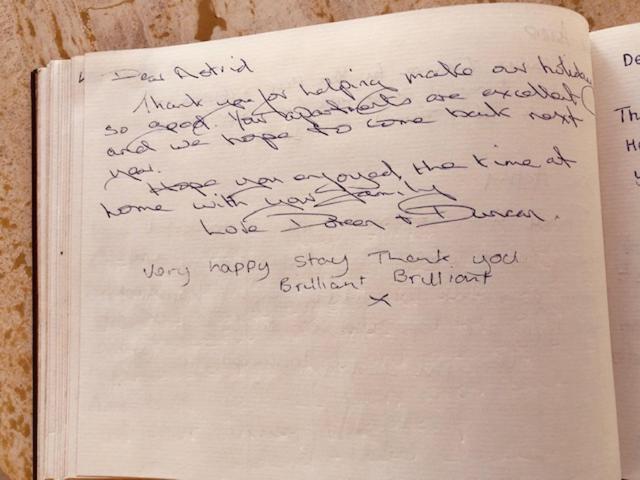 Dear Astrid
Thank you for helping make our holiday
so good. Your apartments are excellent
and we hope to come back next
year.
Hope you enjoyed the time at
home with your family
Love Doreen + Duncan.
Very happy stay Thank you
Brilliant Brilliant
x
De
Th
Ho
y